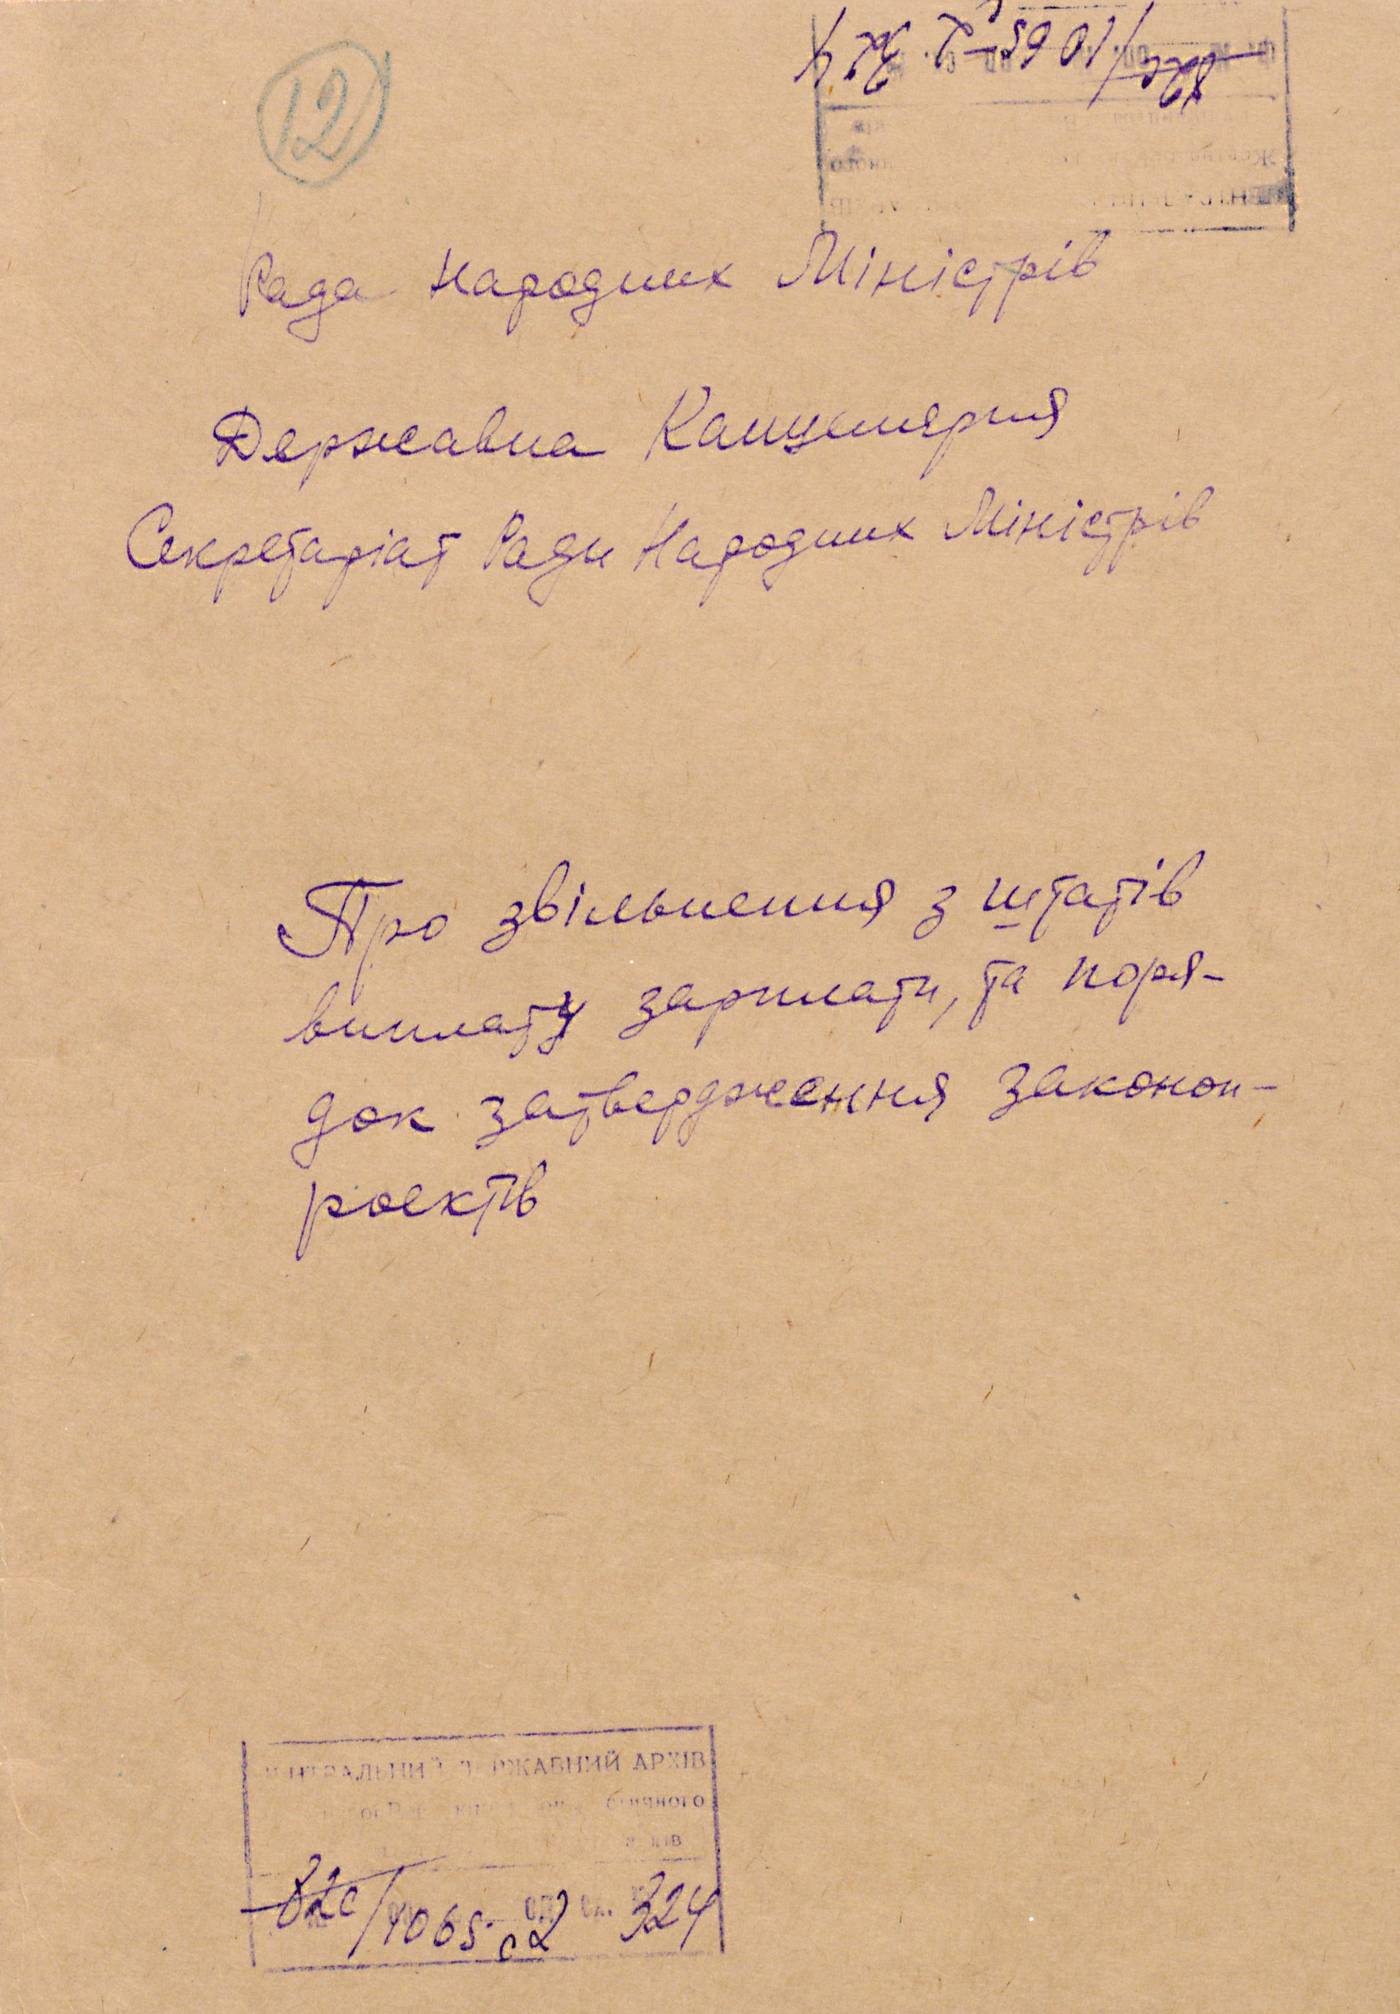 12
Рада народних Міністрів
Державна Канцелярия
Секретаріат Ради Народних Міністрів
Про звільнення з штатів
виплату зарплати, та поря-
док затвердження законоп-
роектів
ДЕРЖАВНИЙ АРХІВ
82с/1065с 2 324